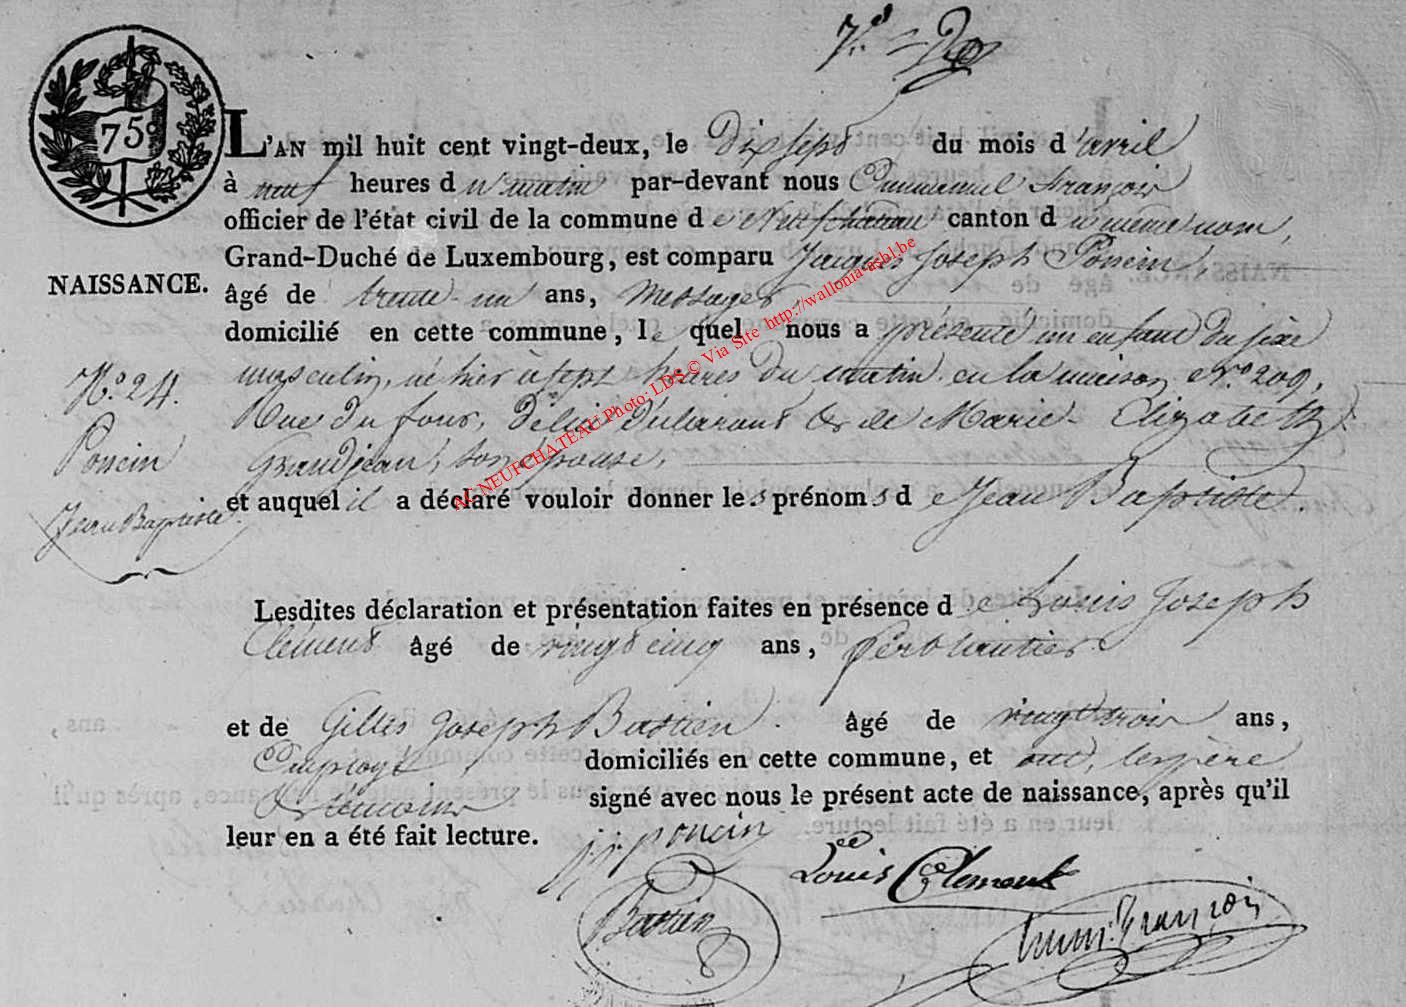 75c
L'AN mil huit cent vingt-deux, le Dix sept du mois d'avril
à neuf heures du matin par-devant nous Emmanuel François
officier de l'état civil de la commune de Neufchateau canton du même nom,
NAISSANCE.
Grand-Duché de Luxembourg, est comparu Jacques Joseph Poncin,
âgé de trente-un ans, Messager,
domicilié en cette commune, lequel nous a présenté un enfant du sexe
masculin, né hier à sept heures du matin en la maison N.o 209,
Rue du four, de lui déclarant & de Marie-Elizabeth
Grandjean, son épouse,
et auquel il a déclaré vouloir donner les prénoms de Jean Baptiste.
N.o 24.
Poncin
Jean Baptiste.
Lesdites déclaration et présentation faites en présence de Louis Joseph
Clément âgé de vingt cinq ans, ferblantier
et de Gilles Joseph Bastien âgé de vingt trois ans,
Employé, domiciliés en cette commune, et ont, les père
& témoins signé avec nous le présent acte de naissance, après qu'il
leur en a été fait lecture.
j. j. poncin
Louis Clement
Bastien
Emm. François
AC NEUFCHATEAU Photo: LDS © Via Site http://wallonia-asbl.be